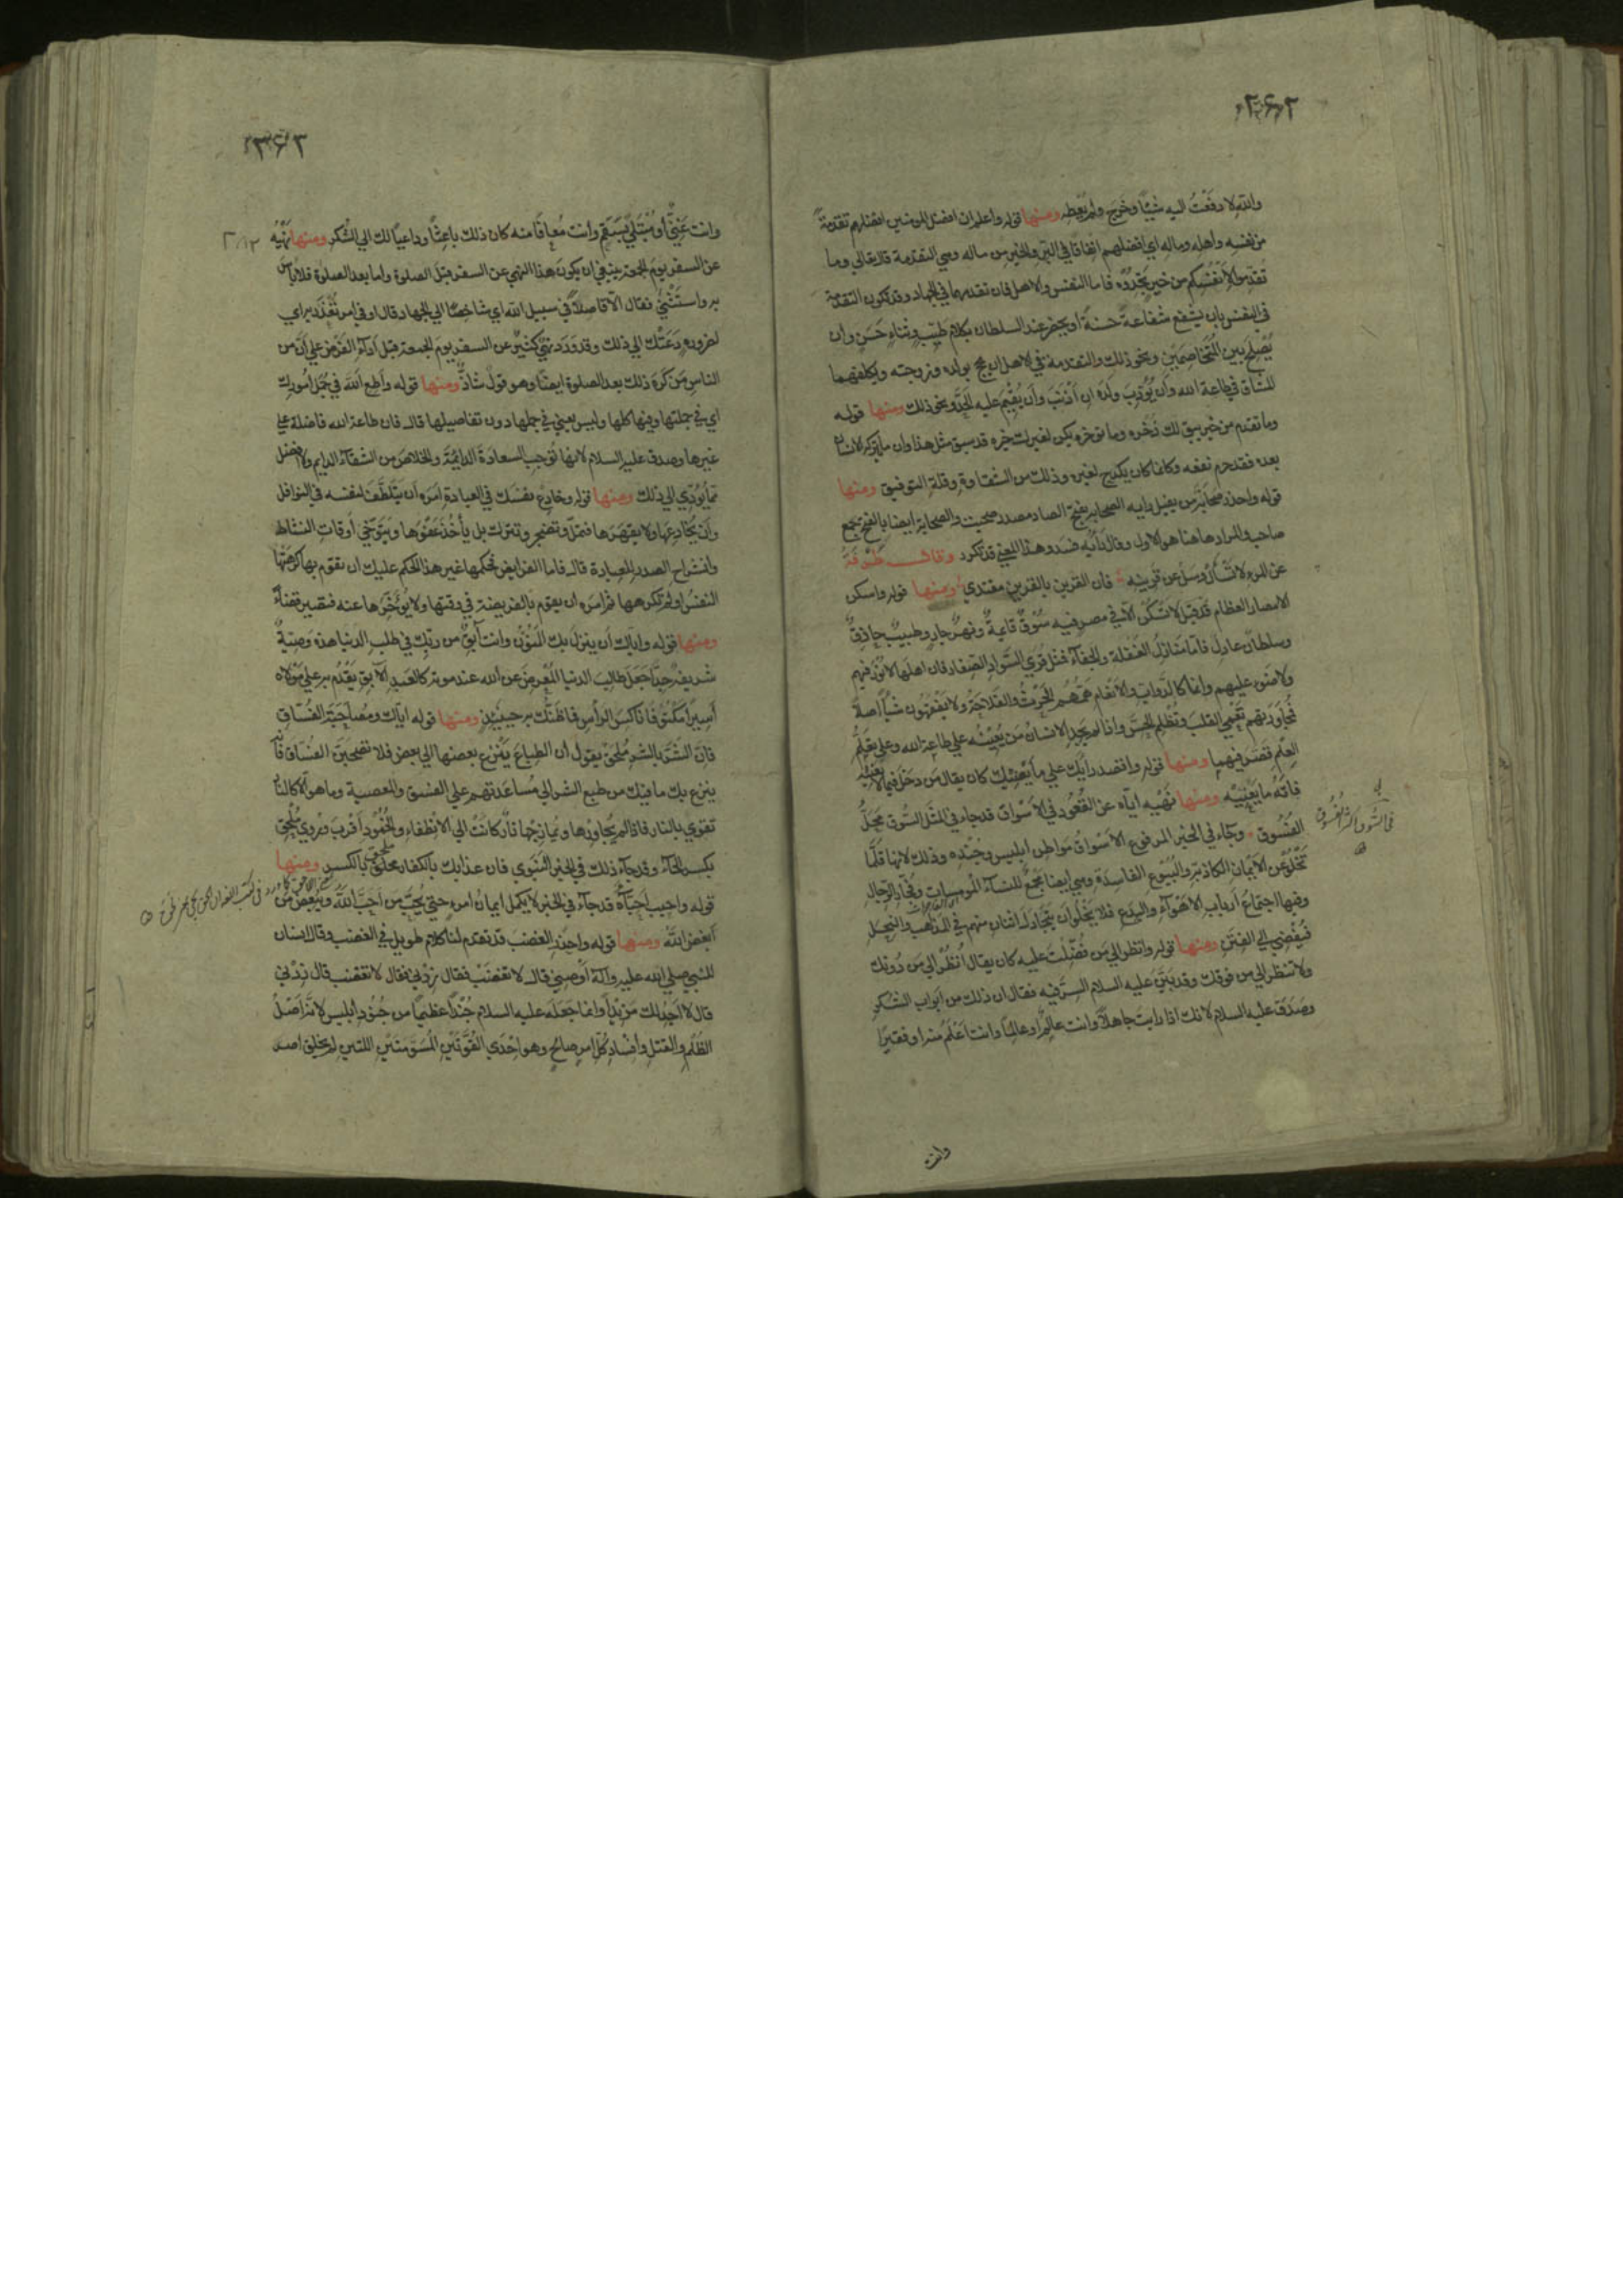 ٢٦٢
والله لا دفعت اليه شيئا وخرج ولم يعطه ومنها قوله واعلم ان افضل المومنين افضلهم تقدمة
من نفسه واهله وماله اي افضلهم انفاقا في البر والخير من ماله وهي التقدمة قال تعالي وما
تقدموا لأنفسكم من خير تجدوه فاما النفس والاهل فان تقدمهما في الجهاد وقد تكون التقدمة
في النفس بان يشفع شفاعة حسنة او يحضر عند السلطان بكلام طيب وثناء حسن وان
يصلح بين المتخاصمين ونحو ذلك والتقدمة في الاهل ان يحج بولده وزوجته ويكلفهما
المشاق في طاعة الله وان يؤدب ولده ان أذنب وان يقيم عليه الحد ونحو ذلك ومنها قوله
وما تقدم من خير يبق لك ذخره وما توخره يكن لغيرك خيره قد سبق مثل هذا وان ما يتركه الانسان
بعده فقد حرم نفعه وكانما كان يكدح لغيره وذلك من الشقاوة وقلة التوفيق ومنها
قوله واحذر صحابة من يفيل رايه الصحابة بفتح الصاد مصدر صحبت والصحابة ايضا بالفتح جمع
صاحب والمراد هاهنا هو الاول وفال رأيه فسد وهذا المعني قد تكرر وقال طرفة
عن المرء لا تسأل وسل عن قرينه فان القرين بالقرين مقتدي ومنها قوله واسكن
الامصار العظام قد قيل لا تسكن الا في مصر فيه سوق قايمة ونهر جار وطبيب حاذق
وسلطان عادل فاما منازل الغفلة والجفاء فمثل قري السواد الصغار فان اهلها لا نور فيهم
ولا ضوء عليهم وانما كالدواب والأنعام همهم الحرث والفلاحة ولا يفقهون شيأ اصلا
فمجاورتهم تعمي القلب وتظلم الحس واذا لم يجد الانسان من يعينه علي طاعة الله وعلي تعلم
العلم قصر فيهما ومنها قوله واقصد رأيك علي ما يعنيك كان يقال من دخل فيما لا يعنيه
فاته ما يعنيه ومنها نهيه اياه عن القعود في الأسواق قد جاء في المثل السوق محل
الفسوق وجاء في الخبر المرفوع الأسواق مواطن ابليس وجنده وذلك لانها قلما
تخلو عن الأيمان الكاذبة والبيوع الفاسدة وهي ايضا مجمع للنساء المومسات وفجار الرجال
وفيها اجتماع أرباب الأهواء والبدع فلا يخلو أن يتجادل اثنان منهم في المذاهب والنحل
فيفضي الي الفتن ومنها قوله وانظر الي من فضلت عليه كان يقال انظر الي من دونك
ولا تنظر الي من فوقك وقد بين عليه السلام السر فيه فقال ان ذلك من ابواب الشكر
وصدق عليه السلام لانك اذا رايت جاهلا وانت عالم او عالما وانت أعلم منه او فقيرا
وانت
٢٦٣
وانت غني أو مبتلي بسقم وأنت معافا منه كان ذلك باعثا وداعيا لك الي الشكر ومنها نهيه
عن السفر يوم الجمعة ينبغي ان يكون هذا النهي عن السفر قبل الصلوة واما بعد الصلوة فلا بأس
به واستثني فقال الا فاصلا في سبيل الله اي شاخصا الي الجهاد قال او في امر تعذر به اي
لضرورة دعتك الي ذلك وقد ورد نهي كثير عن السفر يوم الجمعة قبل اداء الفرض علي أن من
الناس من كره ذلك بعد الصلوة ايضا وهو قول شاذ ومنها قوله وأطع الله في جمل امورك
اي في جملتها وفيها كلها وليس يعني في جملها دون تفاصيلها قال فان طاعة الله فاضلة علي
غيرها وصدق عليه السلام لانها توجب السعادة الدائمة والخلاص من الشقاء الدايم ولا افضل
مما يؤدي الي ذلك ومنها قوله وخادع نفسك في العبادة امره أن يتلطف لنفسه في النوافل
وأن يخادعها ولا يقهرها فتمل وتضجر وتترك بل يأخذ عفوها ويتوخي أوقات النشاط
وانشراح الصدر للعبادة قال فاما الفرايض فحكمها غير هذا الحكم عليك ان تقوم بها كرهتها
النفس او لم تكرهها ثم امره ان يقوم بالفريضة في وقتها ولا يؤخرها عنه فتصير قضاء
ومنها قوله واياك أن ينزل بك المنون وانت آبق من ربك في طلب الدنيا هذه وصية
شريفة جدا جعل طالب الدنيا المعرض عن الله عند موته كالعبد الآبق يقدم به علي مولاه
أسيرا مكتوفا ناكس الرأس فما ظنك به حينئذ ومنها قوله اياك ومصاحبة الفساق
فان الشر بالشر ملحق يقول ان الطباع ينزع بعضها الي بعض فلا تصحبن الفساق فانه
ينزع بك ما فيك من طبع الشر الي مساعدتهم علي الفسق والمعصية وما هو الا كالنار
تقوي بالنار فاذا لم يجاورها ويمازجها نار كانت الي الانطفاء والخمود أقرب وروي ملحق
بكسر الحاء وقد جاء ذلك في الخبر النبوي فان عذابك بالكفار ملحق بالكسر ومنها
قوله واحبب احباءه قد جاء في الخبر لا يكمل ايمان امرء حتي يحب من احب الله ويبغض من
أبغض الله ومنها قوله واحذر الغضب قد تقدم لنا كلام طويل في الغضب وقال انسان
للنبي صلي الله عليه وآله أوصني قال لا تغضب فقال زدني فقال لا تغضب قال زدني
قال لا اجد لك مزيدا وانما جعله عليه السلام جندا عظيما من جنود ابليس لانه اصل
الظلم والقتل وافساد كل امر صالح وهو احدي القوتين المشؤمتين اللتين لم يخلق اضر